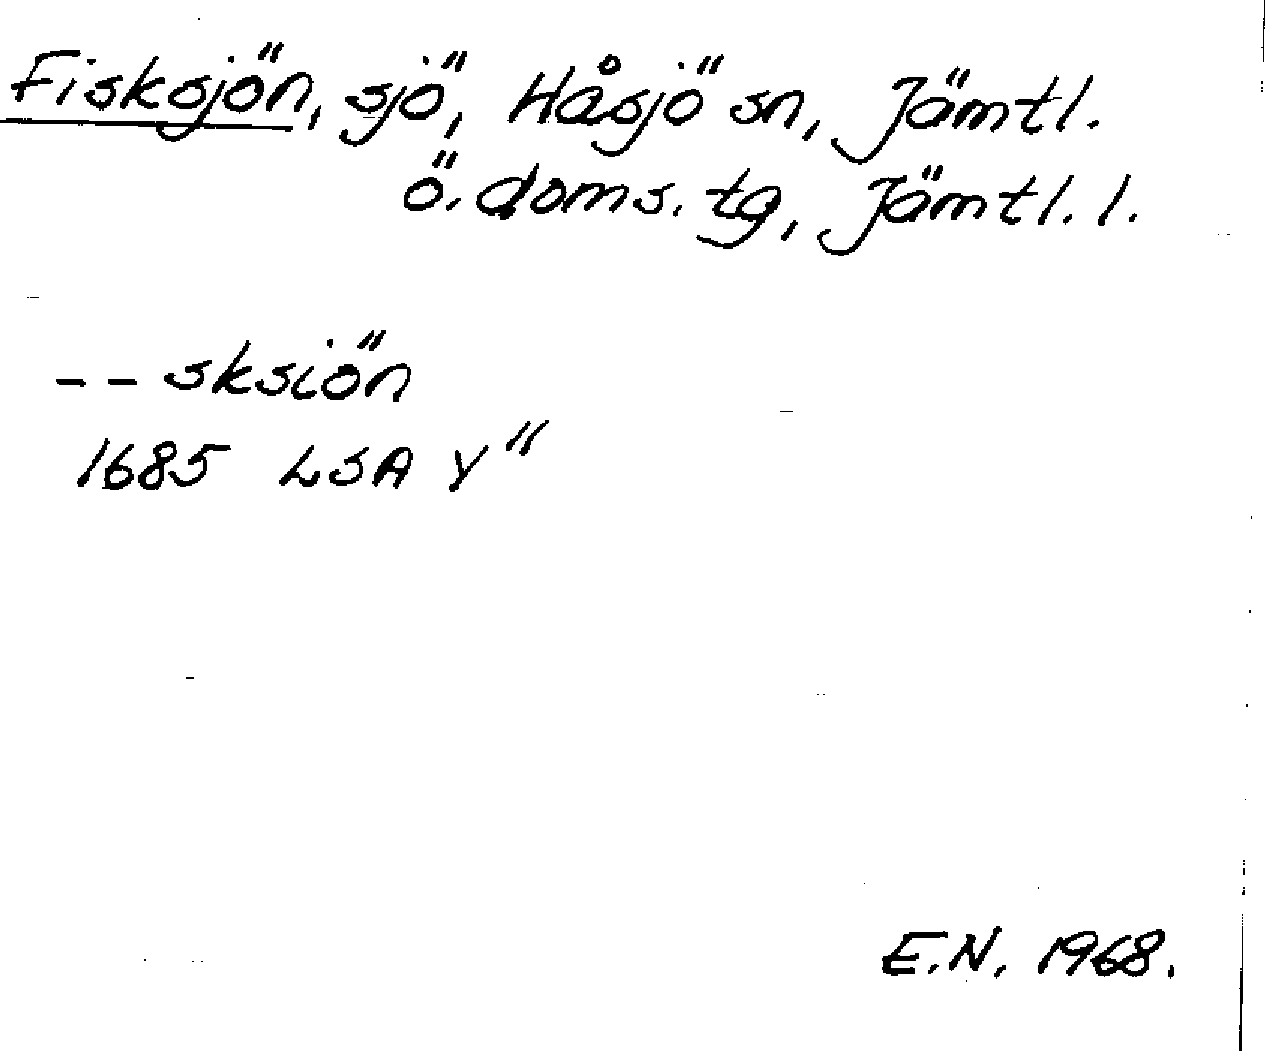 Fisksjön, sjö, Håsjö sn, Jämtl.
ö. doms. tg, Jämtl. l.
-- sksiön
1685 LSA Y"
E.N. 1968.